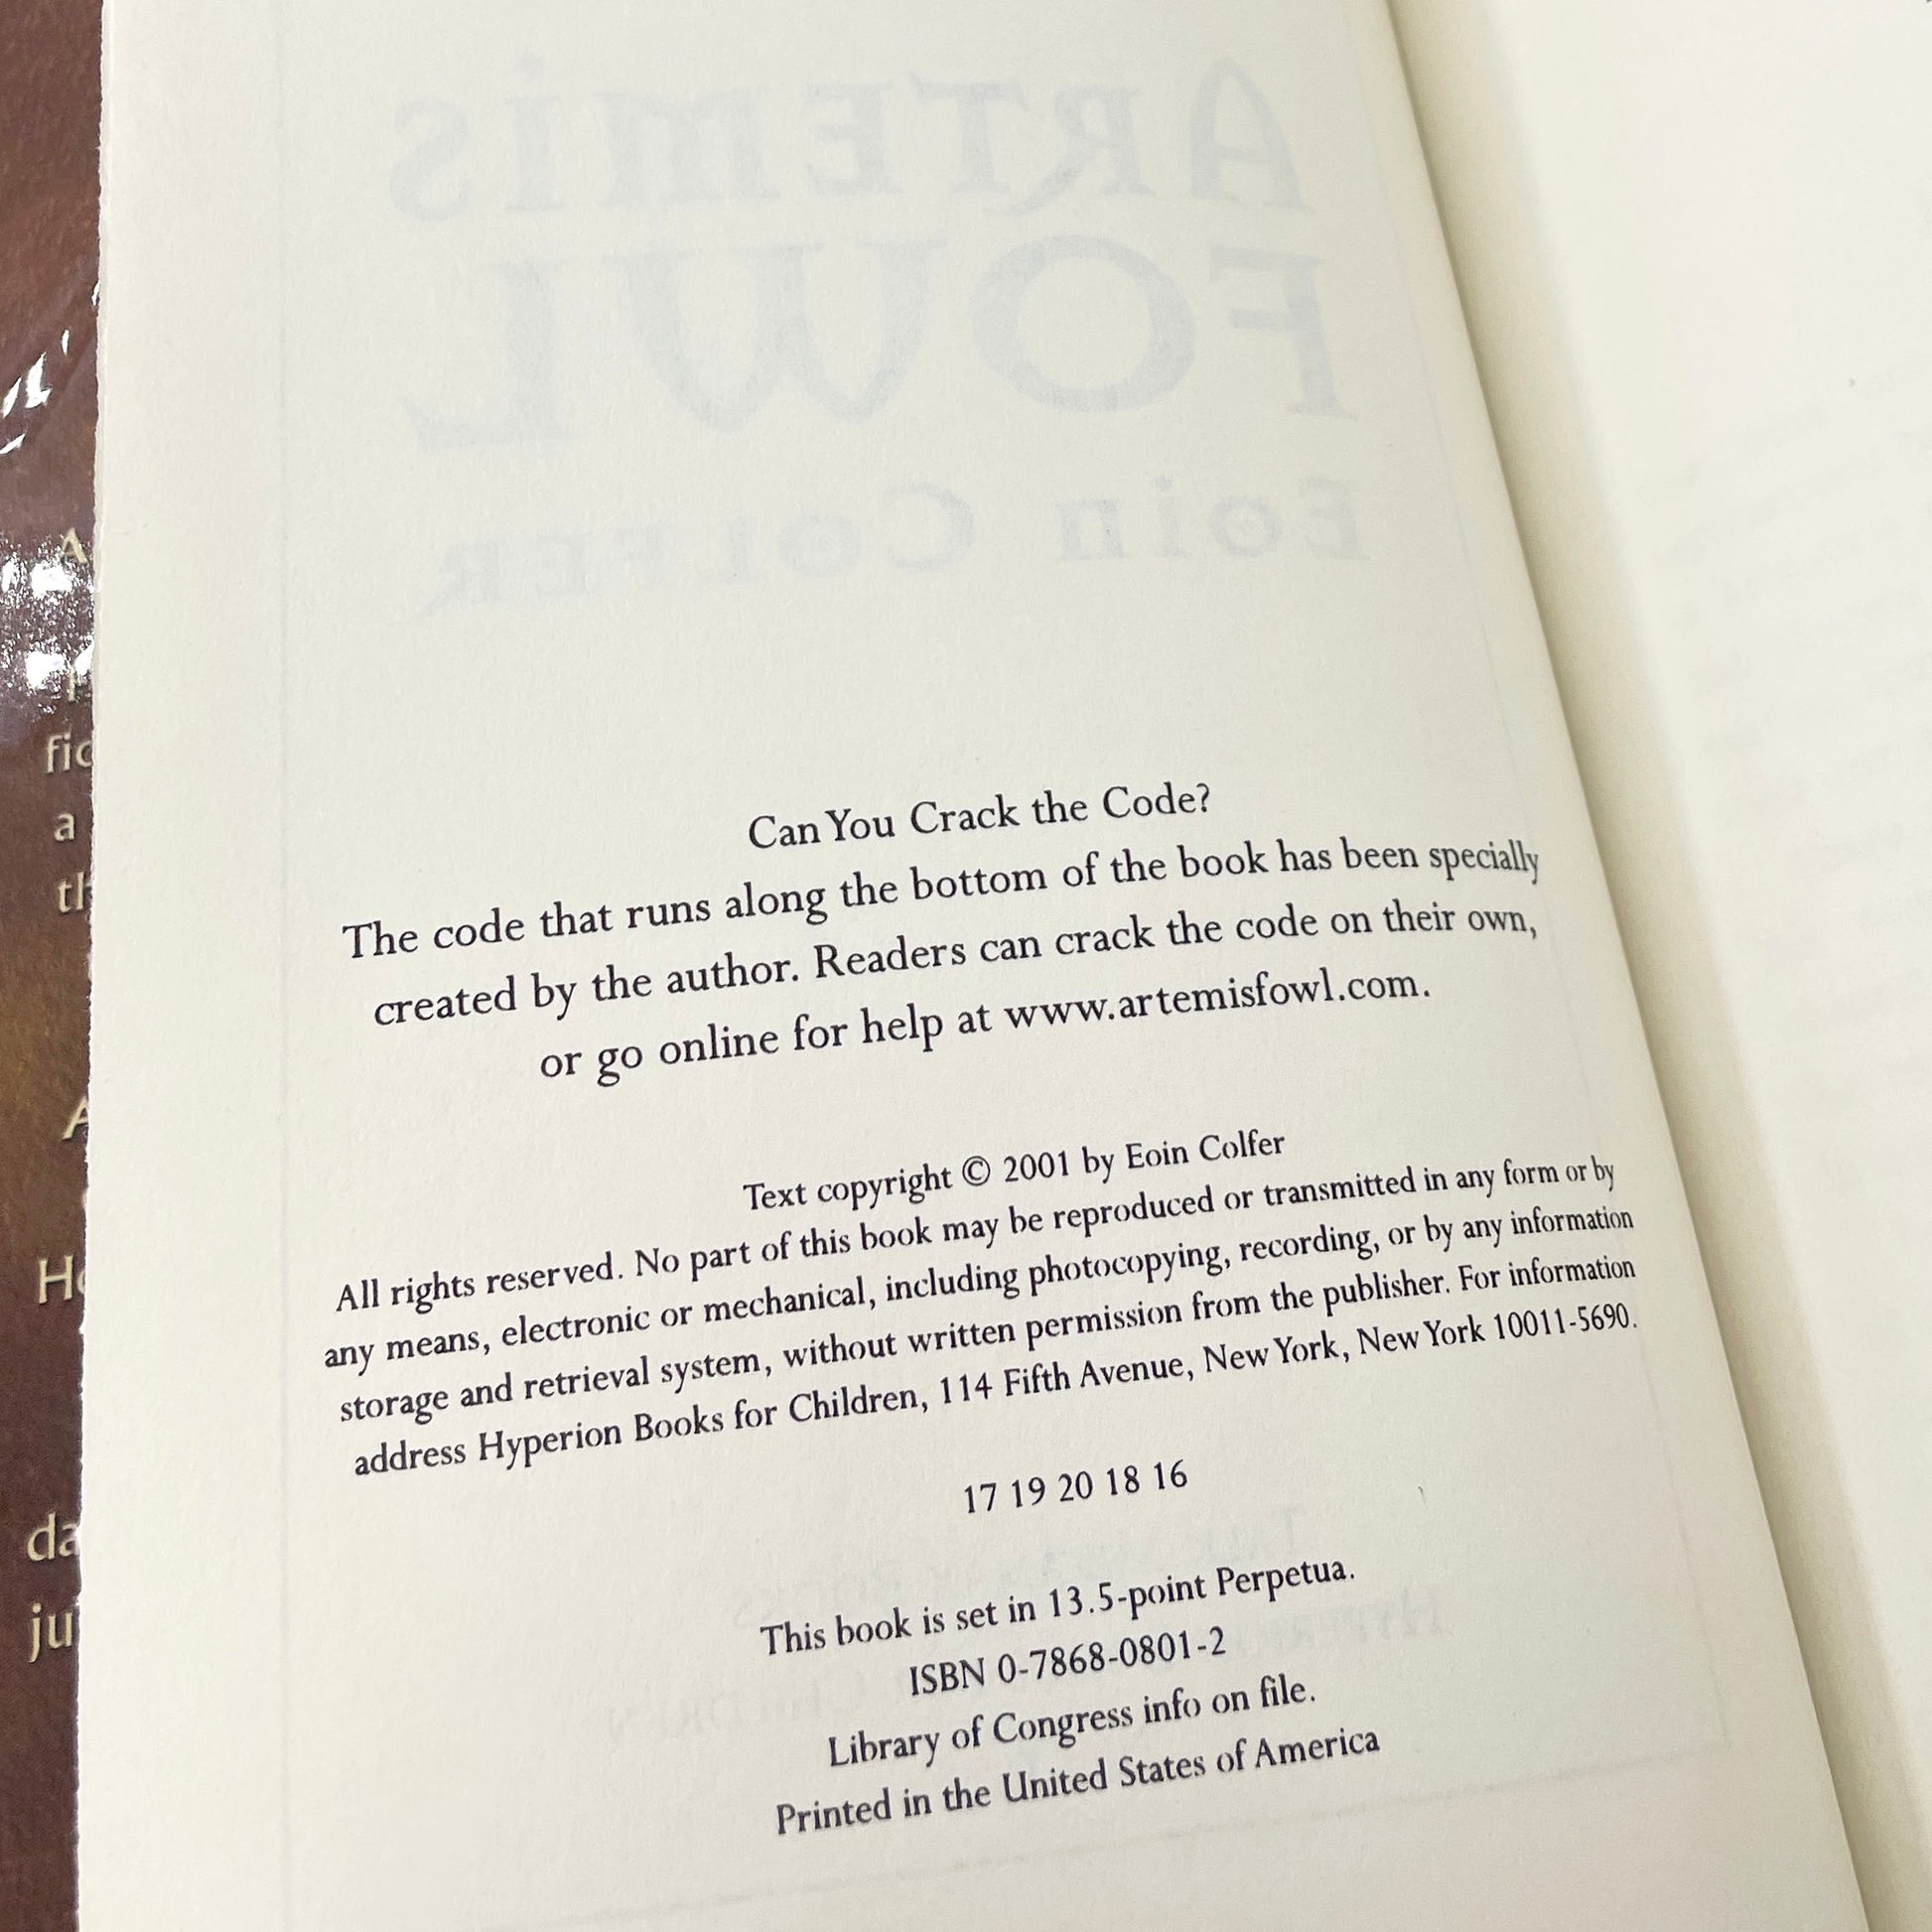 ARTEMIS
FOWL
EOIN COLFER
Can You Crack the Code?
The code that runs along the bottom of the book has been specially
created by the author. Readers can crack the code on their own,
or go online for help at www.artemisfowl.com.
Text copyright © 2001 by Eoin Colfer
All rights reserved. No part of this book may be reproduced or transmitted in any form or by
any means, electronic or mechanical, including photocopying, recording, or by any information
storage and retrieval system, without written permission from the publisher. For information
address Hyperion Books for Children, 114 Fifth Avenue, New York, New York 10011-5690.
17 19 20 18 16
This book is set in 13.5-point Perpetua.
ISBN 0-7868-0801-2
Library of Congress info on file.
Printed in the United States of America